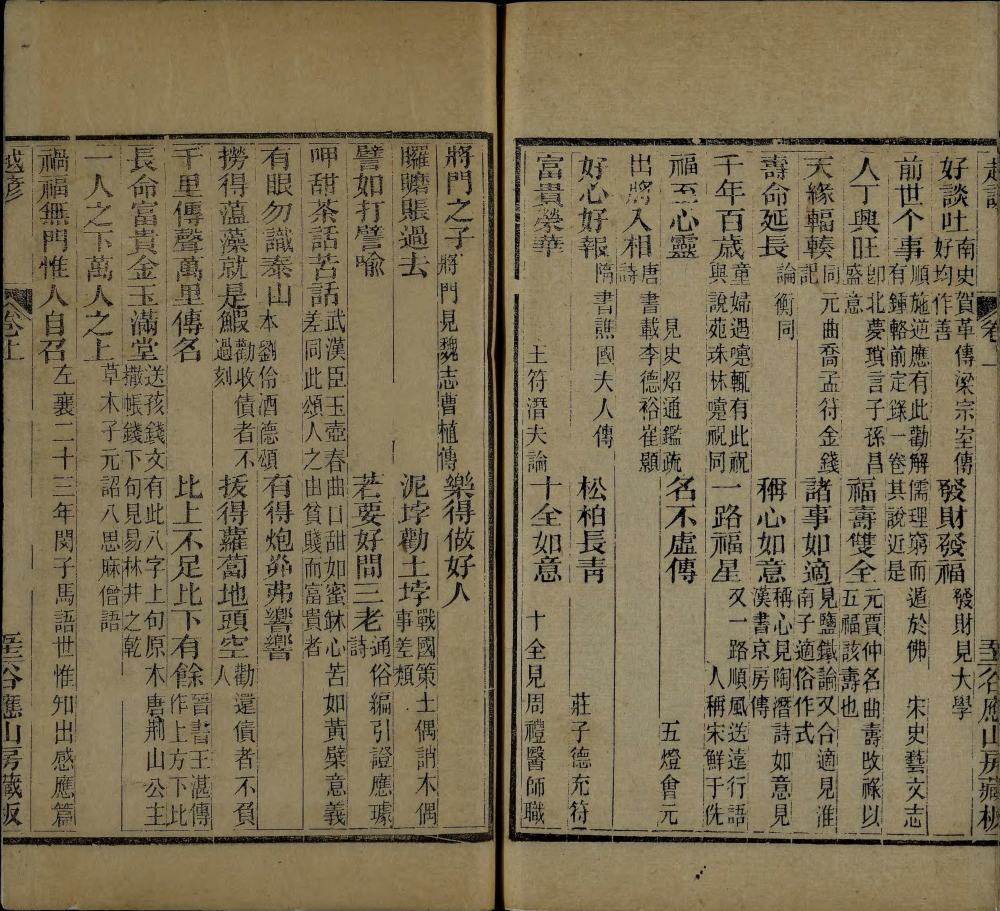 越諺 卷上 谷應山房藏板
好談吐 南史賀革傳梁宗室傳好均作善 發財發福 發財見大學
前世个事 順施逆應有此勸解儒理窮而遁於佛 宋史藝文志有鍾輅前定錄一卷其說近是
人丁興旺 卽北夢瑣言子孫昌盛意 福壽雙全 元賈仲名曲壽攺祿以五福該壽也
天緣輻輳 同元曲喬孟符金錢記 諸事如適 見鹽鐵論又合適見淮南子適俗作式
壽命延長 論衡同 稱心如意 稱心見陶潛詩如意見漢書京房傳
千年百歲 童婦遇嚏輒有此祝與說苑珠林嚏祝同 一路福星 又一路順風送遠行語人稱宋鮮于侁
福至心靈 見史炤通鑑疏 名不虛傳 五燈會元
出將入相 唐書載李德裕崔顥詩
好心好報 隋書譙國夫人傳 松柏長靑 莊子德充符
富貴榮華 王符潛夫論 十全如意 十全見周禮醫師職
將門之子 將門見魏志曹植傳 樂得做好人
賬過去 泥垶勸土垶 戰國策土偶誚木偶事差類
譬如打譬喻 若要好問三老 通俗編引證應璩詩
呷甜茶話苦話 武漢臣玉壺春曲口甜如蜜鉢心苦如黃檗意義差同此頌人之由貧賤而富貴者
有眼勿識泰山 本劉伶酒德頌 有得炮弗響響
撈得薀藻就是鰕 勸收債者不過刻 拔得蘿蔔地頭空 勸還債者不負人
千里傳聲萬里傳名 比上不足比下有餘 晉書王湛傳作上方下比
長命富貴金玉滿堂 送孩錢文有此八字上句原本唐荆山公主撒帳錢下句見易林井之乾
一人之下萬人之上 草木子元詔八思麻僧語
禍福無門惟人自召 左襄二十三年閔子馬語世惟知出感應篇
越諺 卷上 谷應山房藏板